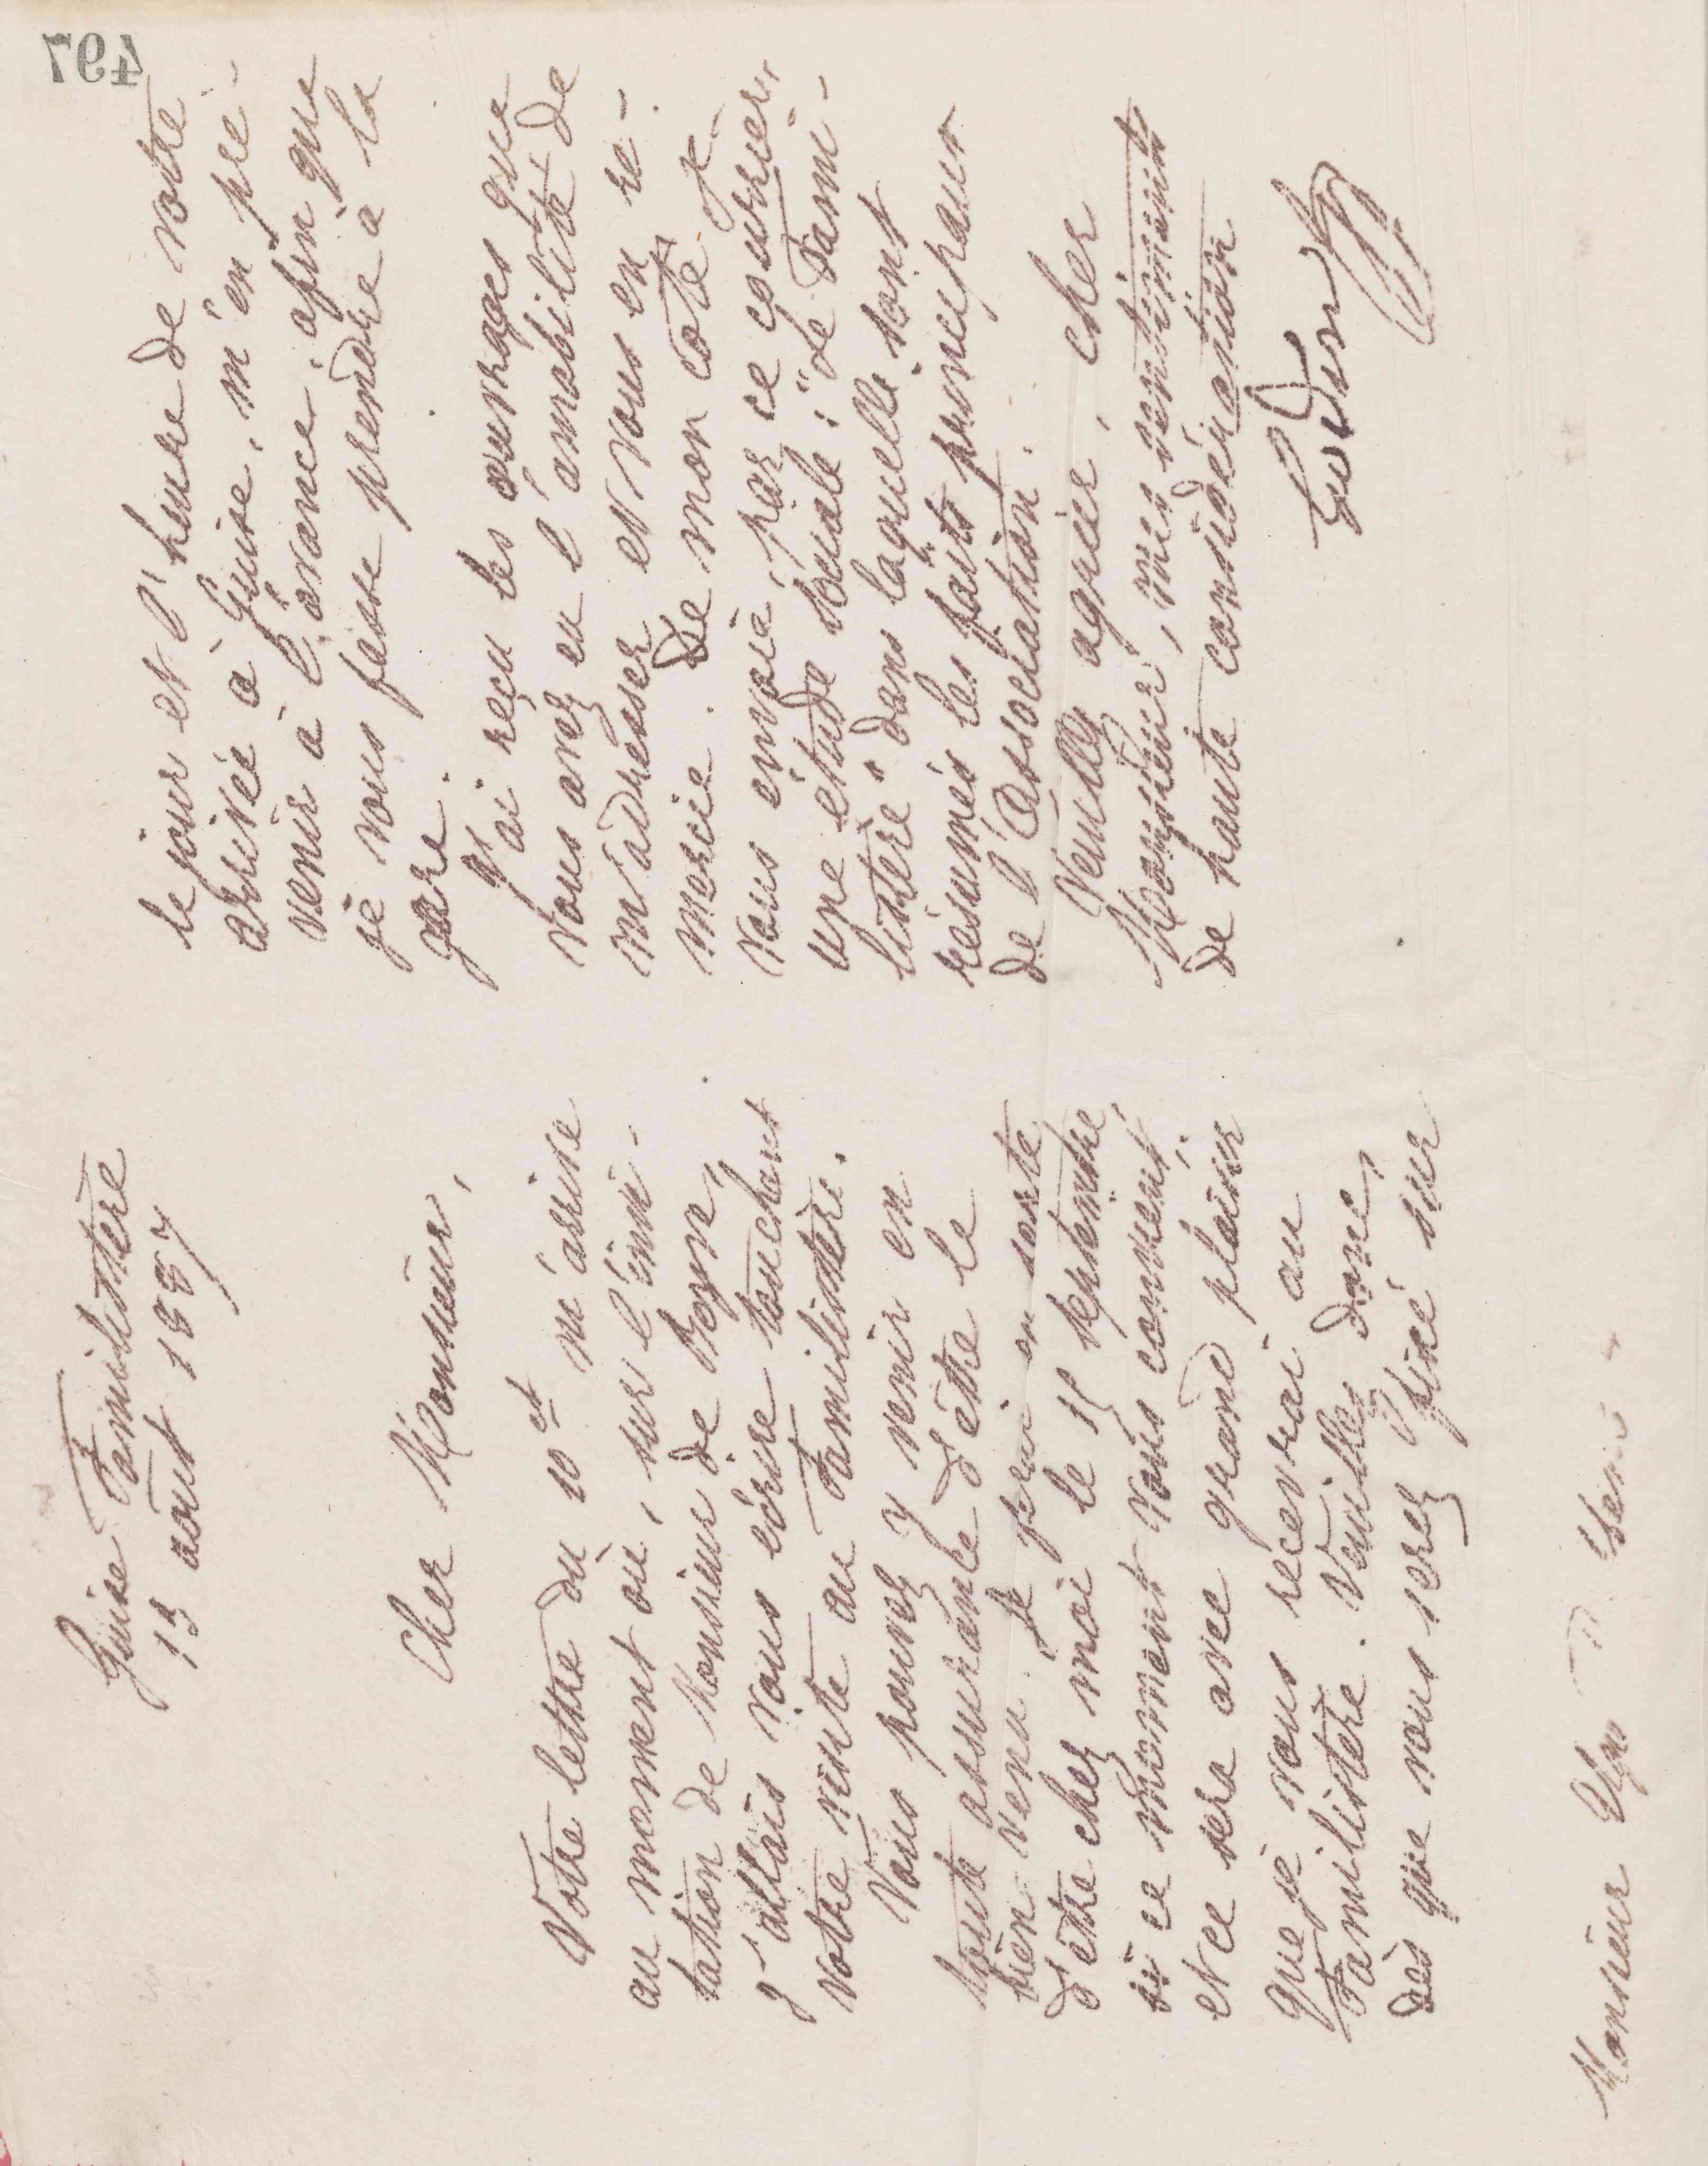 Guise Familistère
13 août 1887
Cher Monsieur,
Votre lettre du 10 ct m'arrive
au moment où, sur l'invi-
tation de Monsieur de Boyve,
j'allais vous écrire touchant
votre visite au Familistère.
Vous pouvez y venir en
toute assurance d'être le
bien venu. Je ferai en sorte
d'être chez moi le 15 septembre,
si ce moment vous convient;
et ce sera avec grand plaisir
que je vous recevrai au
Familistère. Veuillez donc,
dès que vous serez fixé sur
Monsieur
le jour et l'heure de votre
arrivée à Guise, m'en pré-
venir à l'avance, afin que
je vous fasse prendre à la
gare.
J'ai reçu les ouvrages que
vous avez eu l'amabilité de
m'adresser et vous en re-
mercie. De mon côté je
vous envoie, par ce courrier,
une étude sociale: "Le Fami-
listère" dans laquelle sont
résumés les faits principaux
de l'Association.
Veuillez agréer, cher
Monsieur, mes sentiments
de haute considération
Godin
497